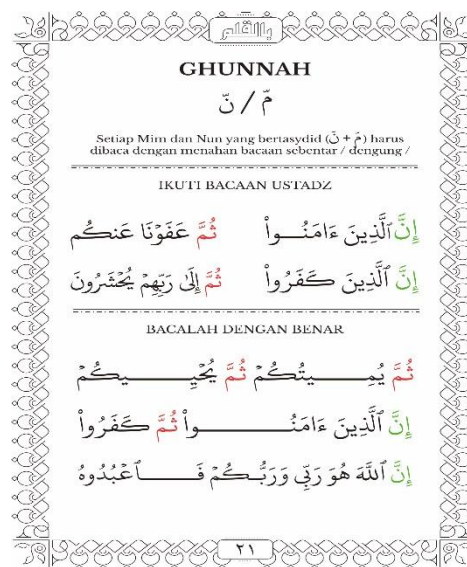 بالقلم
GHUNNAH
مّ / نّ
Setiap Mim dan Nun yang bertasydid (مّ + نّ) harus
dibaca dengan menahan bacaan sebentar / dengung /
IKUTI BACAAN USTADZ
إِنَّ ٱلَّذِينَ ءَامَنُــوا۟ ثُمَّ عَفَوْنَا عَنكُم
إِنَّ ٱلَّذِينَ كَفَرُوا۟ ثُمَّ إِلَىٰ رَبِّهِمْ يُحْشَرُونَ
BACALAH DENGAN BENAR
ثُمَّ يُمِـــيتُكُمْ ثُمَّ يُحْيِـــيكُمْ
إِنَّ ٱلَّذِينَ ءَامَنُـــوا۟ ثُمَّ كَفَرُوا۟
إِنَّ ٱللَّهَ هُوَ رَبِّى وَرَبُّكُمْ فَـــٱعْبُدُوهُ
٢١